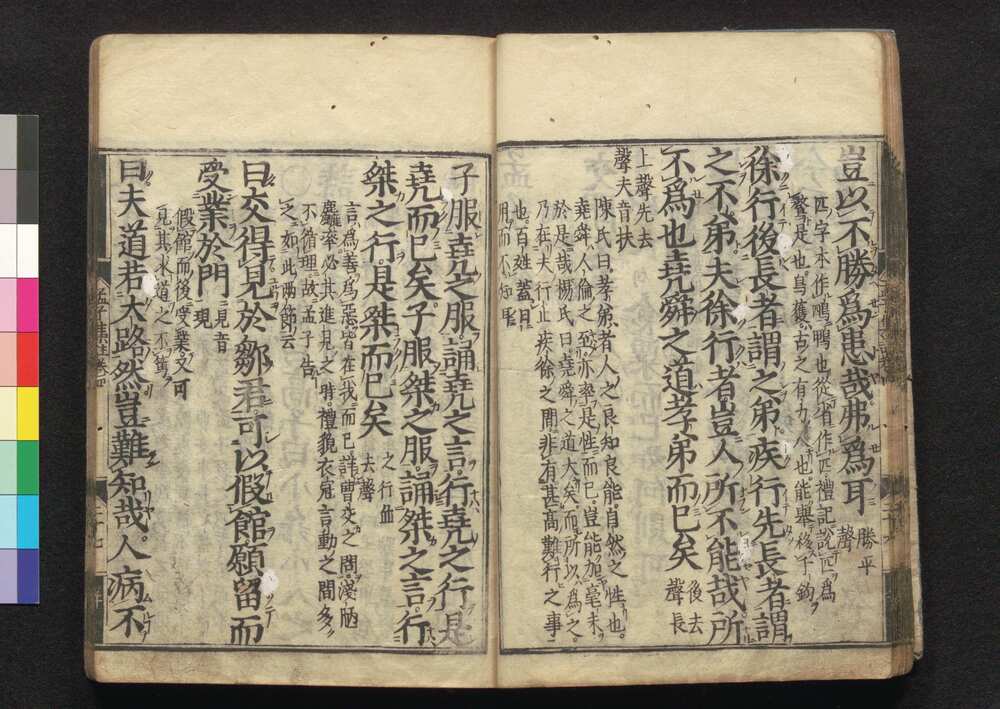 豈以不勝爲患哉弗爲耳 勝平聲
匹字本作鴄鴨也從省作匹禮記説匹爲
鶩是也烏獲古之有力人也能擧移千鈞
徐行後長者謂之弟疾行先長者謂
之不弟夫徐行者豈人所不能哉所
不爲也堯舜之道孝弟而已矣 後去聲長
上聲先去聲夫音扶
陳氏曰孝弟者人之良知良能自然之性也
堯舜人倫之至亦率是性而已豈能加毫末
於是哉楊氏曰堯舜之道大矣而所以爲之
乃在夫行止疾徐之間非有甚高難行之事
也百姓蓋日用而不知耳
子服堯之服誦堯之言行堯之行是
堯而已矣子服桀之服誦桀之言行
桀之行是桀而已矣 之行並去聲
言爲善爲惡皆在我而已詳曹交之問淺陋
麤率必其進見之時禮貌衣冠言動之間多
不循理故孟子告之如此兩節云
曰交得見於鄒君可以假館願留而
受業於門 見音現
假館而後受業又可見其求道之不篤
曰夫道若大路然豈難知哉人病不
孟子集註卷四
二十七